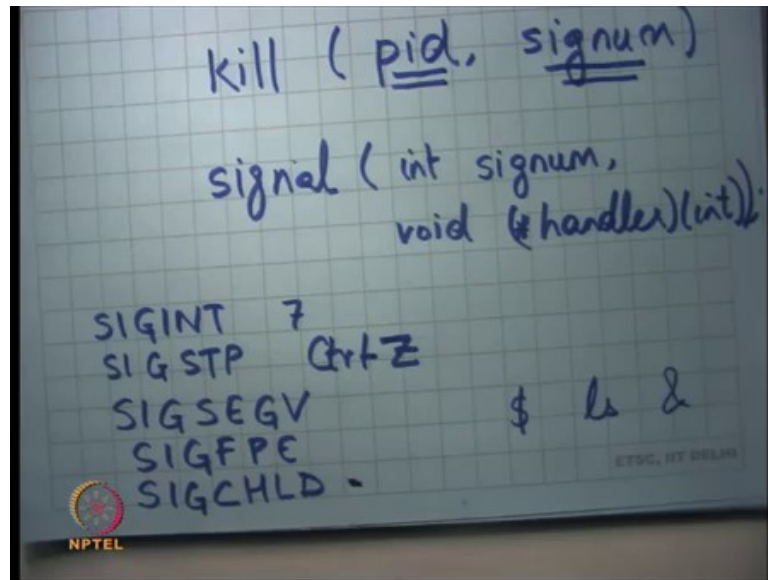 kill ( pid, signum)
signal ( int signum,
void (* handler)(int));
SIGINT 7
SIGSTP Ctrl-Z
SIGSEGV
$ ls &
SIGFPE
SIGCHLD
ETSC, IIT DELHI
NPTEL